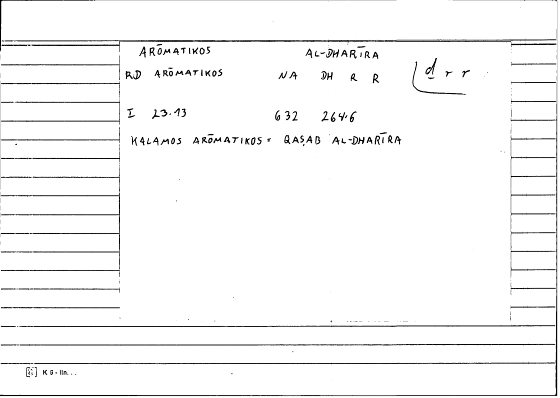 ARŌMATIKOS AL-DHARĪRA
RD ARŌMATIKOS NA DH R R d̲ r r
I 23.13 632 264.6
KALAMOS ARŌMATIKOS = QAṢAB AL-DHARĪRA
K 6 - lin...